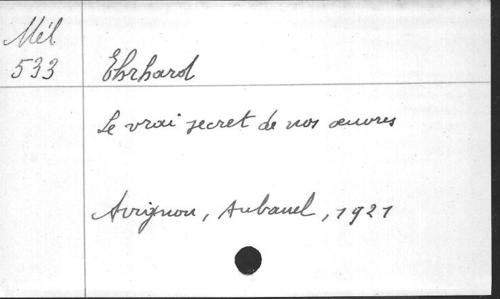 Mél
533
Ehrhard
Le vrai secret de nos œuvres
Avignon, Aubanel, 1921